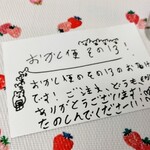 おかし便その13!
おかし便その13のお届け
です!ご注文、どうもが
ありがとうございます!
たのしんでくださーい!